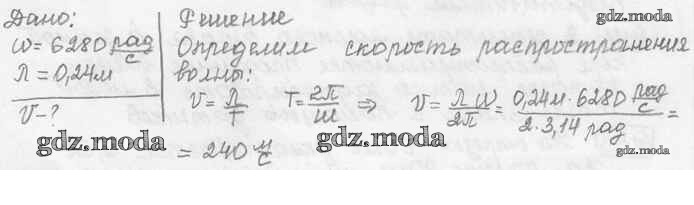 gdz.moda
Дано:
ω = 6280 рад/с
Л = 0,24 м
V - ?
Решение
Определим скорость распространения
волны:
V = Л/T T = 2П/ω ⇒ V = Лω/2П = 0,24м · 6280 рад/с / 2 · 3,14 рад =
= 240 м/с
gdz.moda
gdz.moda
gdz.moda